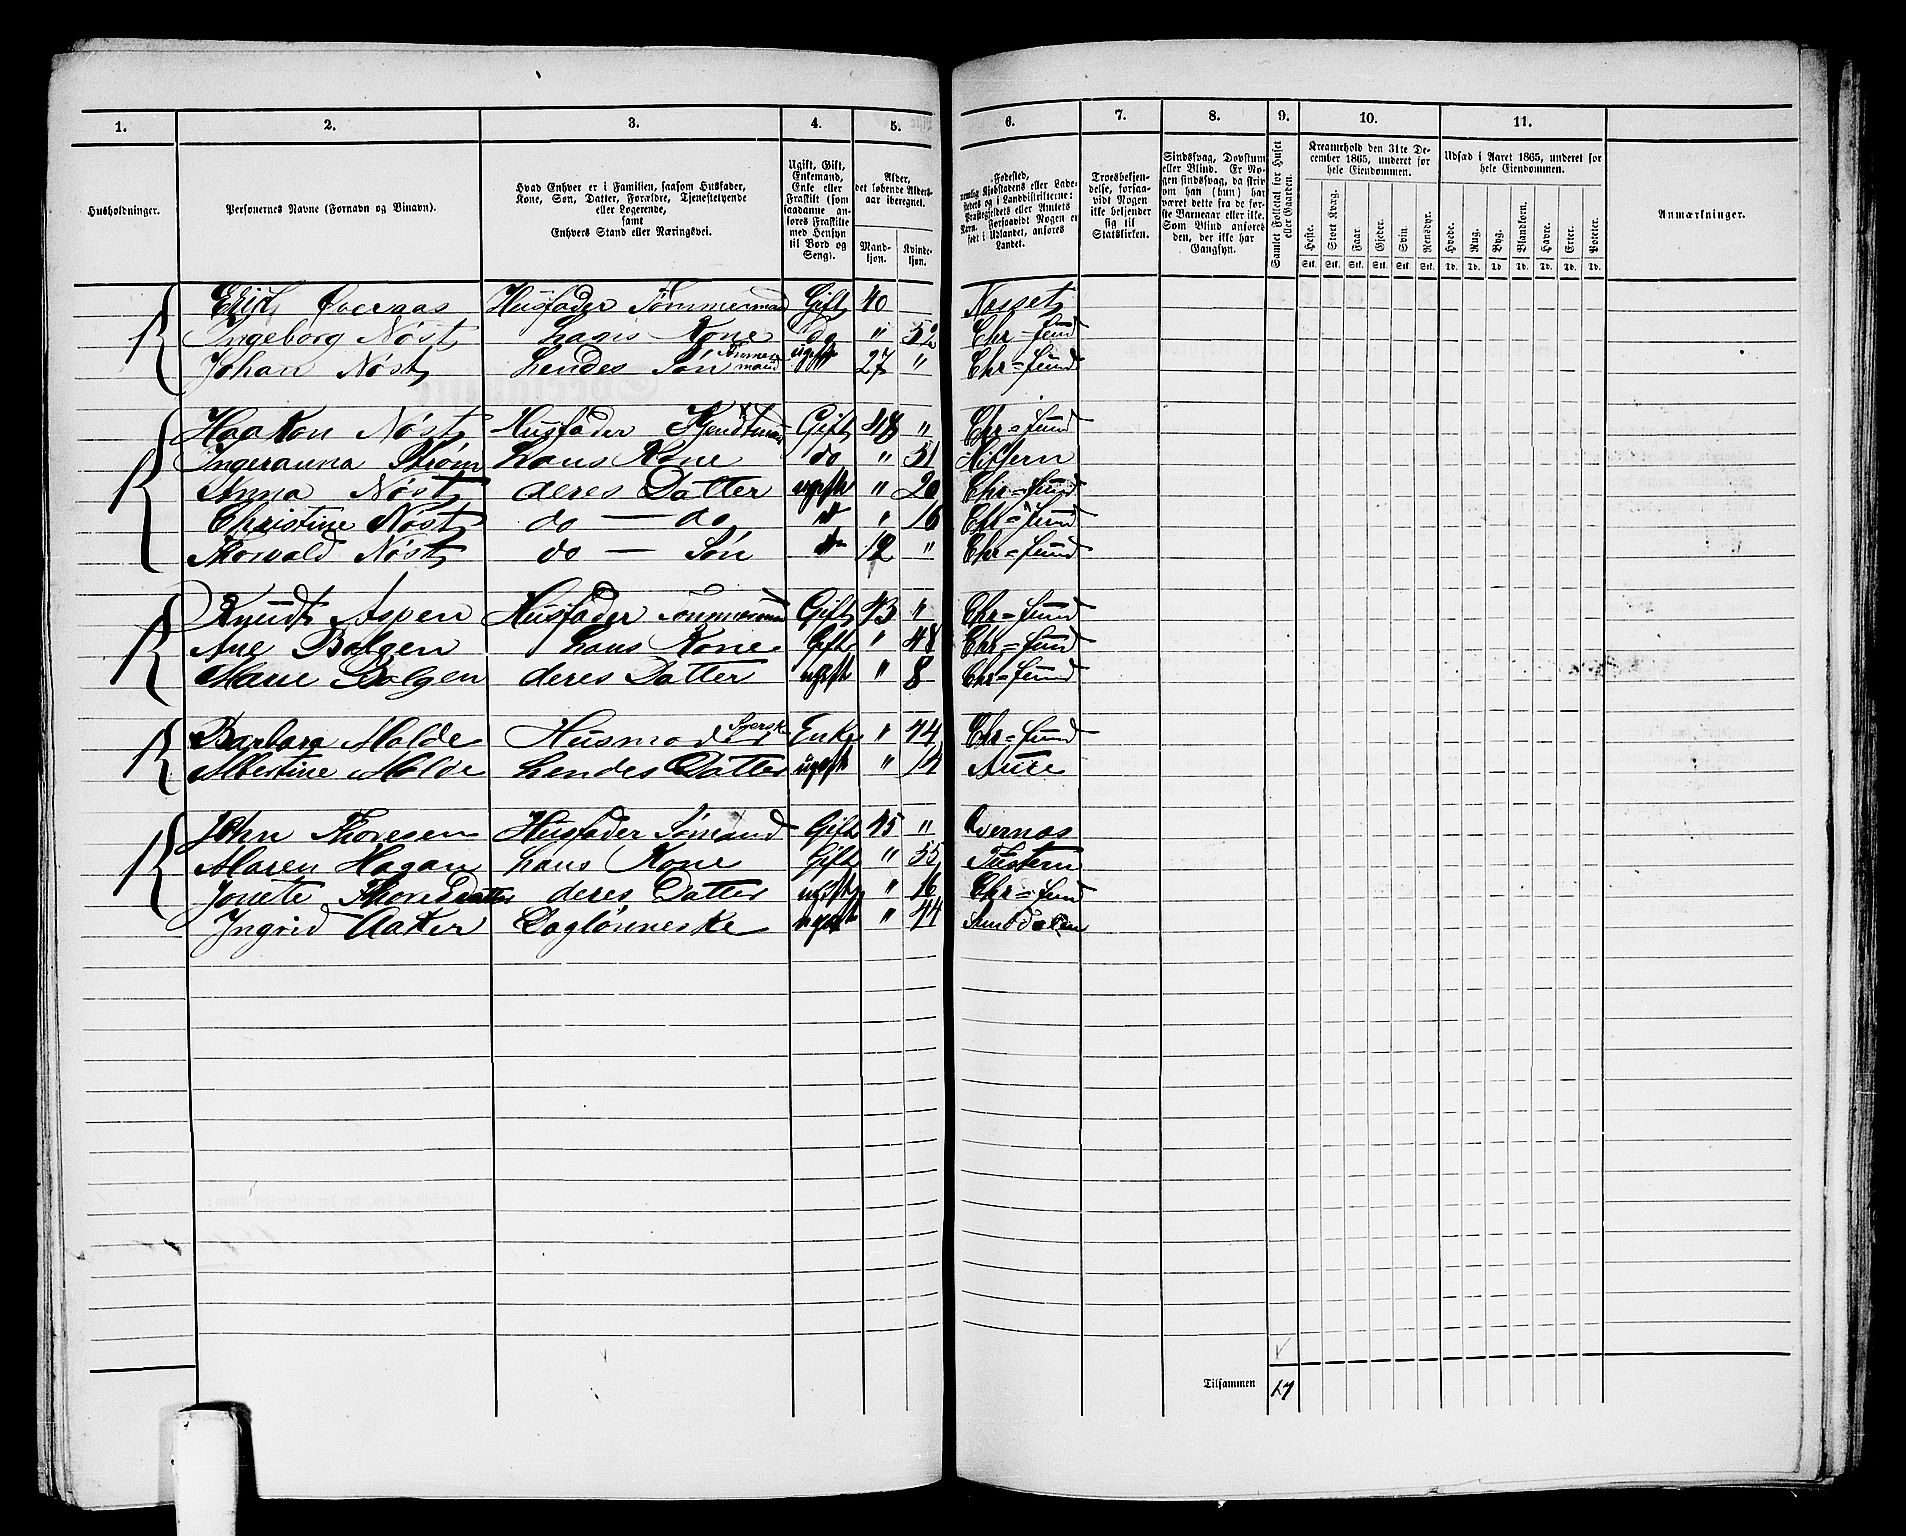 1. 2. 3. 4. 5. 6. 7. 8. 9. 10. 11.
Husholdninger.
Personernes Navne (Fornavn og Tilnavn).
Hvad Enhver er i Familien, saasom Husfader,
Kone, Søn, Datter, Forældre, Tjenestetyende
eller Logerende,
samt
Enhvers Stand eller Næringsvei.
Ugift, Gift,
Enkemand,
Enke eller
Fraskilt (som
saadanne an-
føres Fraskilte
med Hensyn
til Bord og
Seng).
Alder,
det løbende Alders-
aar iberegnet.
Mand-
kjøn.
Kvinde-
kjøn.
Fødested,
Landet.
Troesbekjen-
delse, forsaa-
vidt Nogen
ikke bekjender
sig til
Statskirken.
Sindssvag, Døvstum
eller Blind. Er No-
gen sindssvag, da skriv
om han (hun) har
været dette fra de før-
ste Barneaar eller ikke.
Som Blind anføres
den, der ikke har
Gangsyn.
Samlet Folketal for Huset
eller Gaarden.
Kreaturhold den 31te De-
cember 1865, underet for
hele Eiendommen.
Heste. Stort Kvæg. Faar. Gjeder. Svin. Rensdyr.
Stk. Stk. Stk. Stk. Stk. Stk.
Udsæd i Aaret 1865, underet for
hele Eiendommen.
Hvede. Rug. Byg. Blandkorn. Havre. Erter. Poteter.
Td. Td. Td. Td. Td. Td. Td.
Anmærkninger.
Øvernas Husfader Tømmermand Gift 40 Nesset
Ingeborg Nøst hans Kone do " 52 Chr-sund
Johan Nøst hendes Søn Tømmermand ugift 27 " Chr=sund
Haakon Nøst Husfader Kjendtmand Gift 48 " Chr=sund
Ingeranna Strøm hans Kone do " 51 Hittern
Anna Nøst deres Datter ugift " 20 Chr=sund
Christine Nøst do — do do " 16 Chr=sund
Thorvald Nøst do — Søn do 12 " Chr=sund
Knudt Aspen Husfader Tømmermand Gift 43 " Chr=sund
Ane Bolgen hans Kone Gift " 48 Chr=sund
Marie Bolgen deres Datter ugift " 8 Chr=sund
Barbara Molde Husmoder Syerske Enke " 44 Chr=sund
Albertine Molde hendes Datter ugift " 14 Aure
John Thoresen Husfader Sømand Gift 45 " Øvernas
Maren Hagan hans Kone Gift " 55 Tustern
Jonete Thoresdatter deres Datter ugift " 16 Chr=sund
Ingrid Aaker Daglønneske ugift " 44 Sunddalen
Tilsammen 17